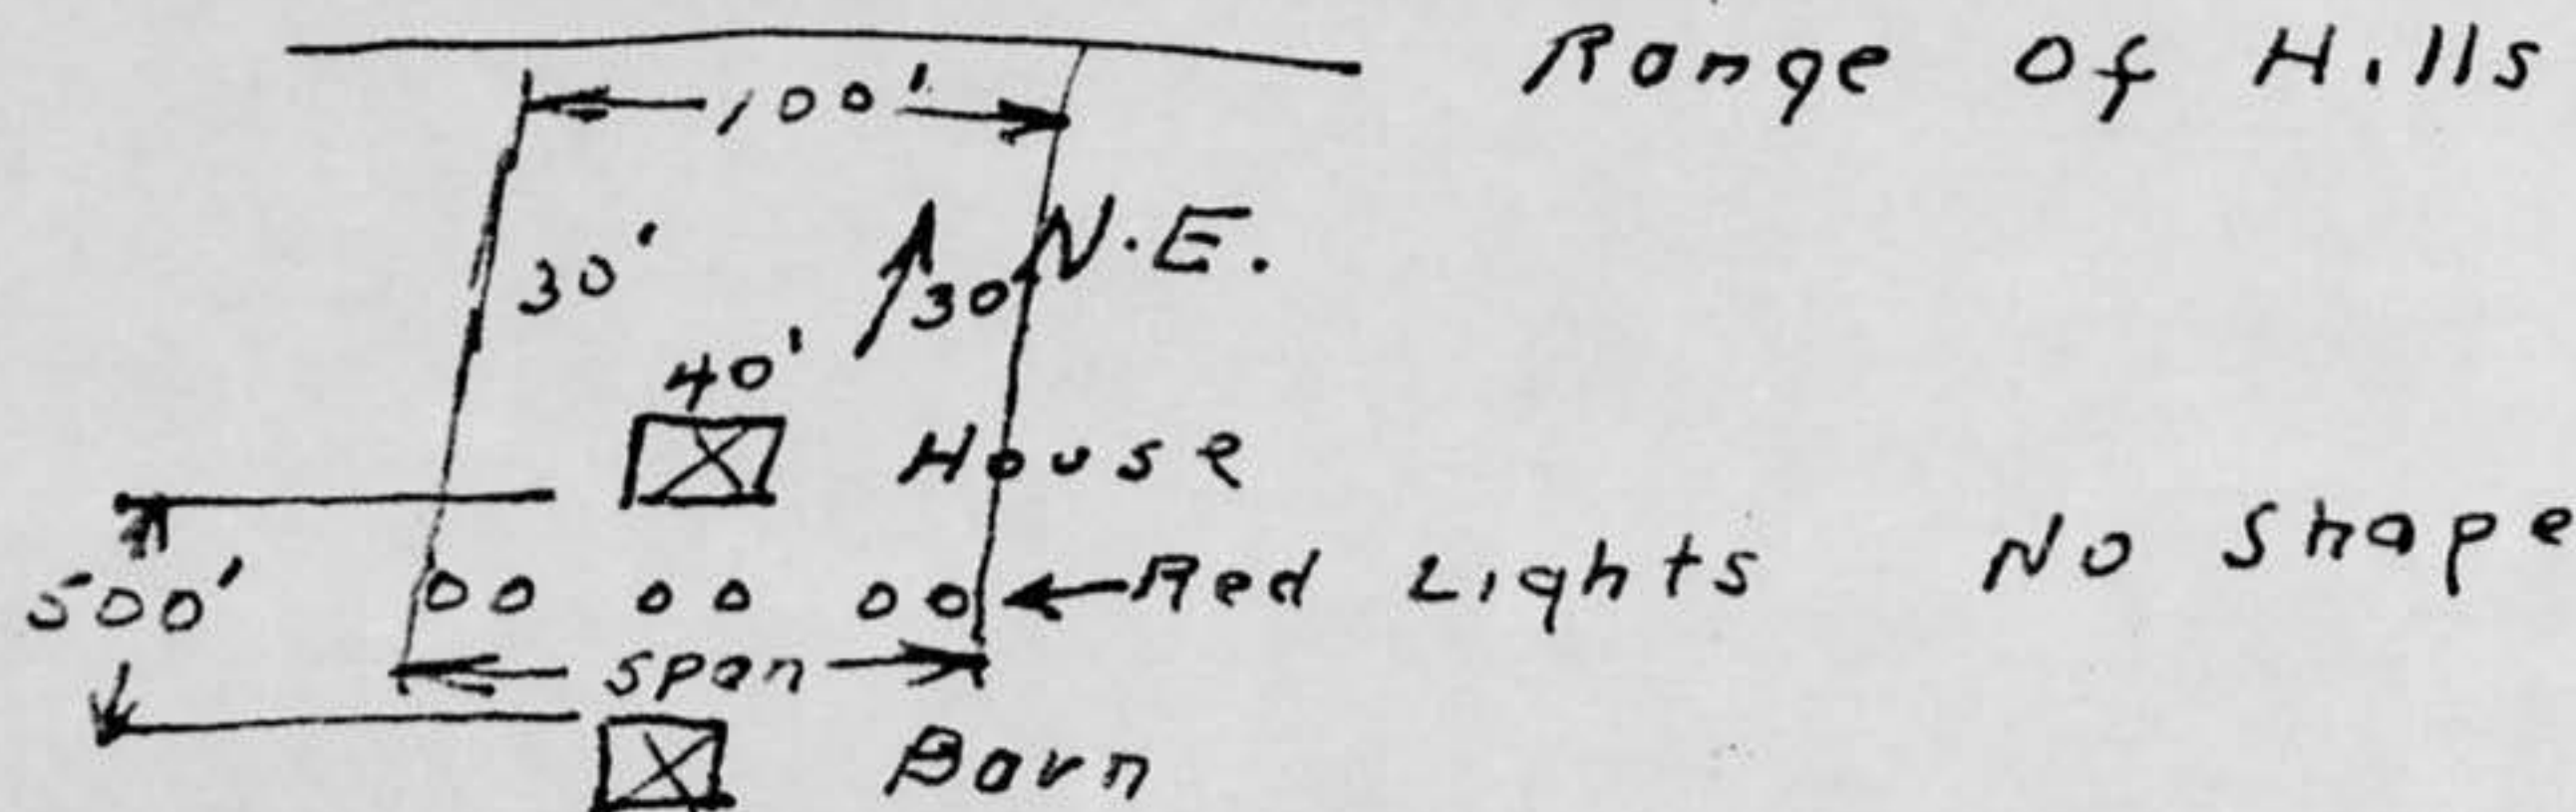 Range Of Hills
100'
30'
30 N.E.
40'
House
500'
Red Lights No Shape
span
Barn